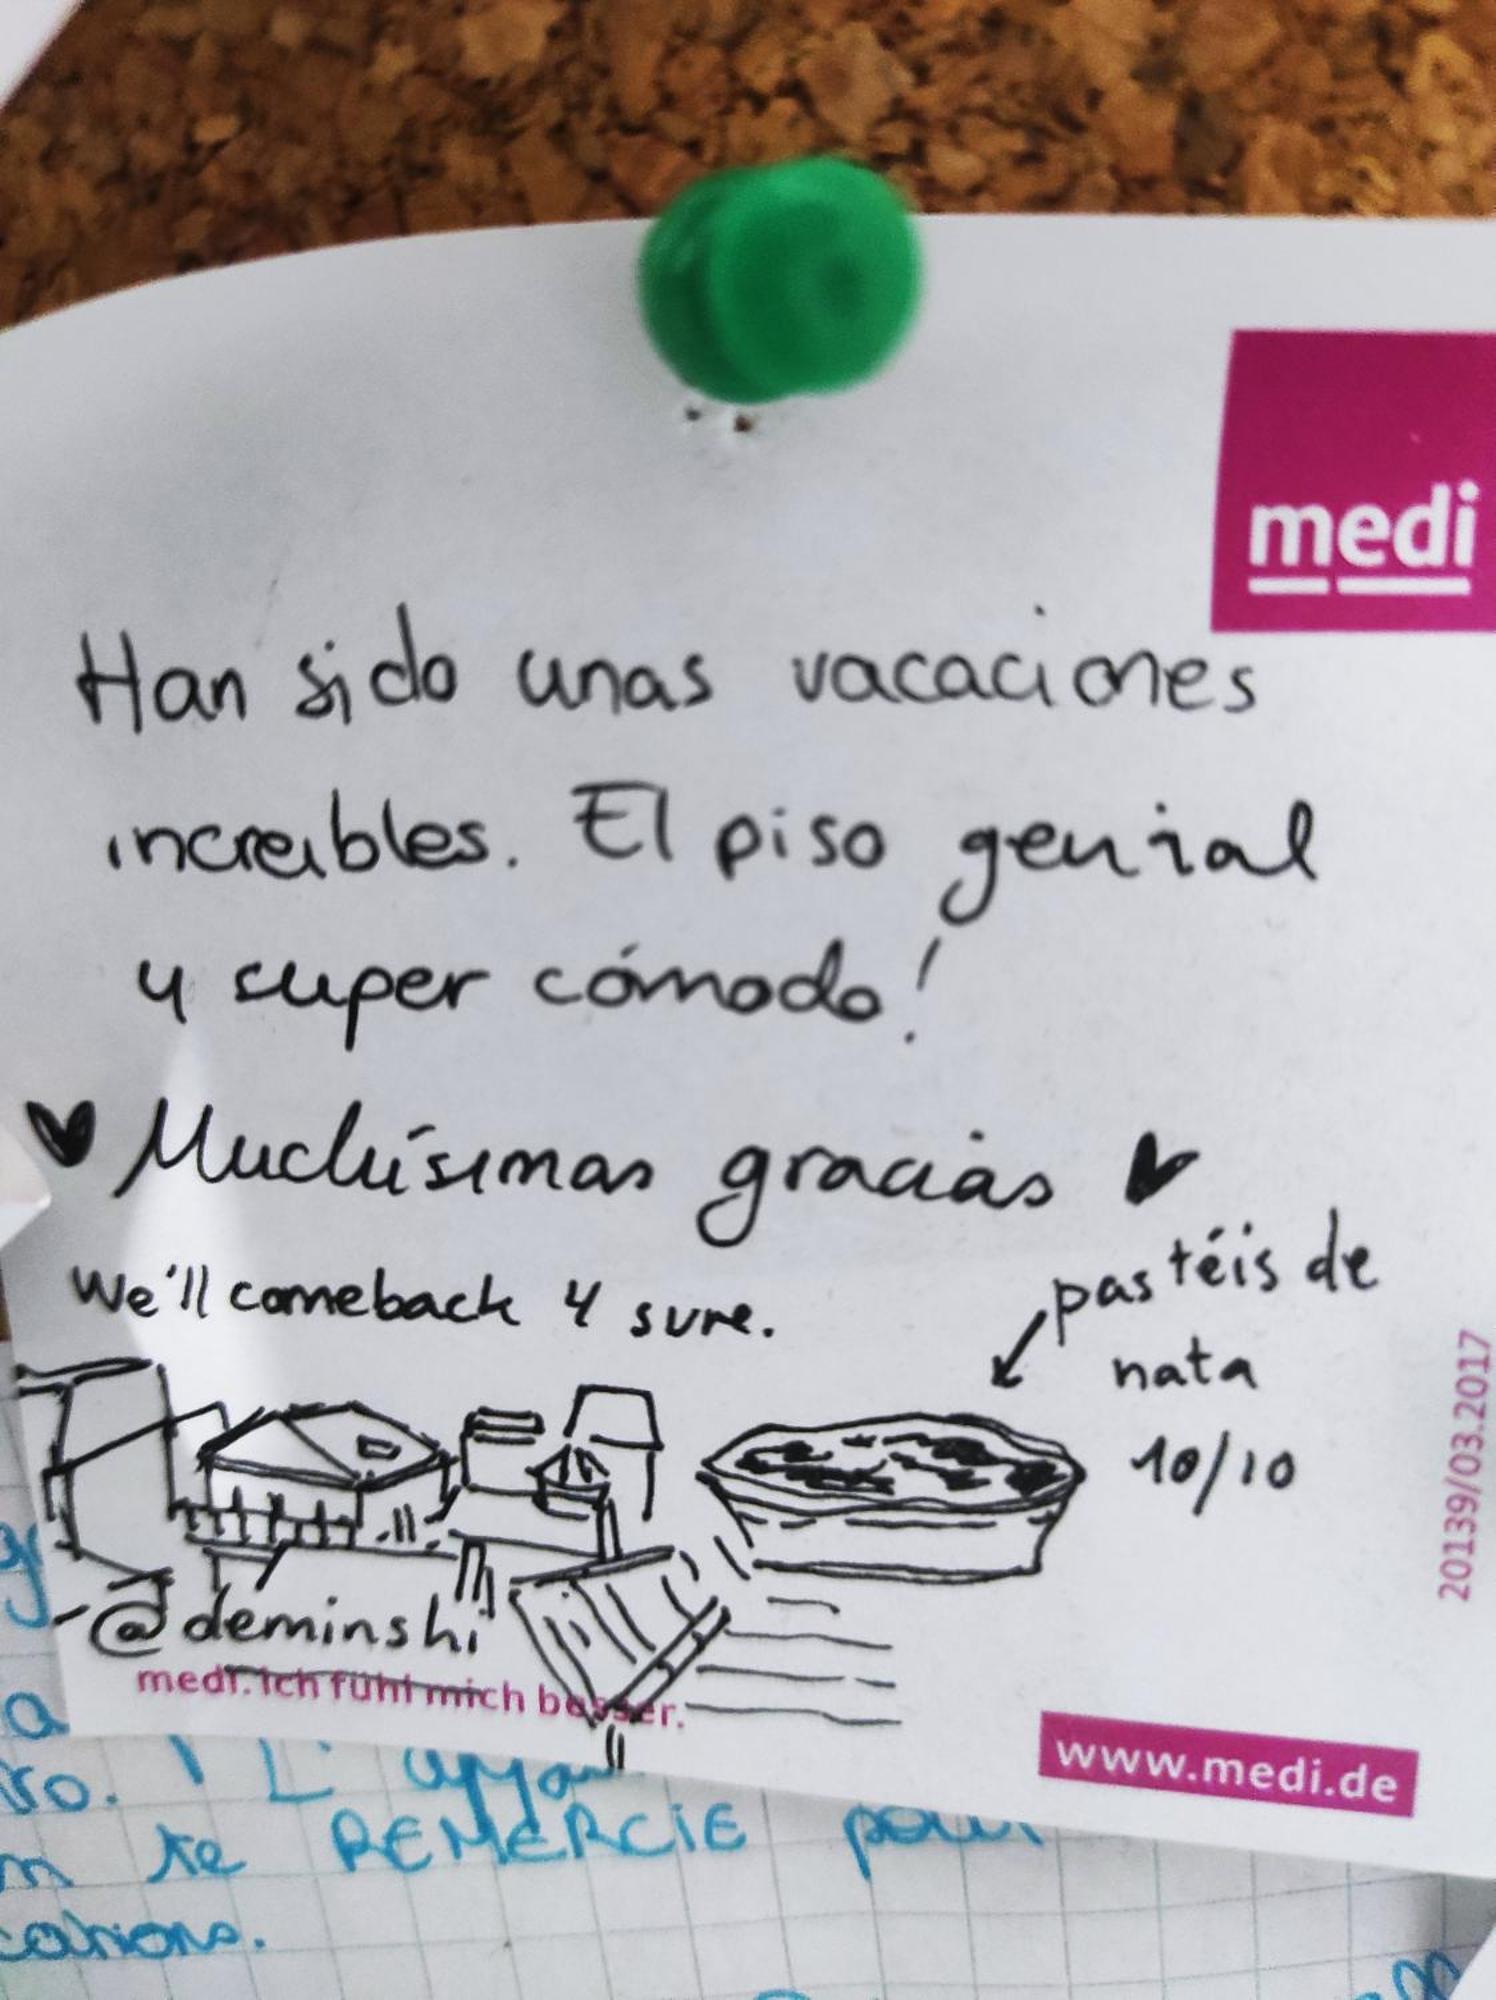 medi
Han sido unas vacaciones
increibles. El piso genial
y super cómodo!
Muchísimas gracias
We'll comeback 4 sure.
pastéis de
nata
10/10
-@deminshi
medi. ich fühl mich besser.
www.medi.de
20139/03.2017
a
te REMERCIE pour